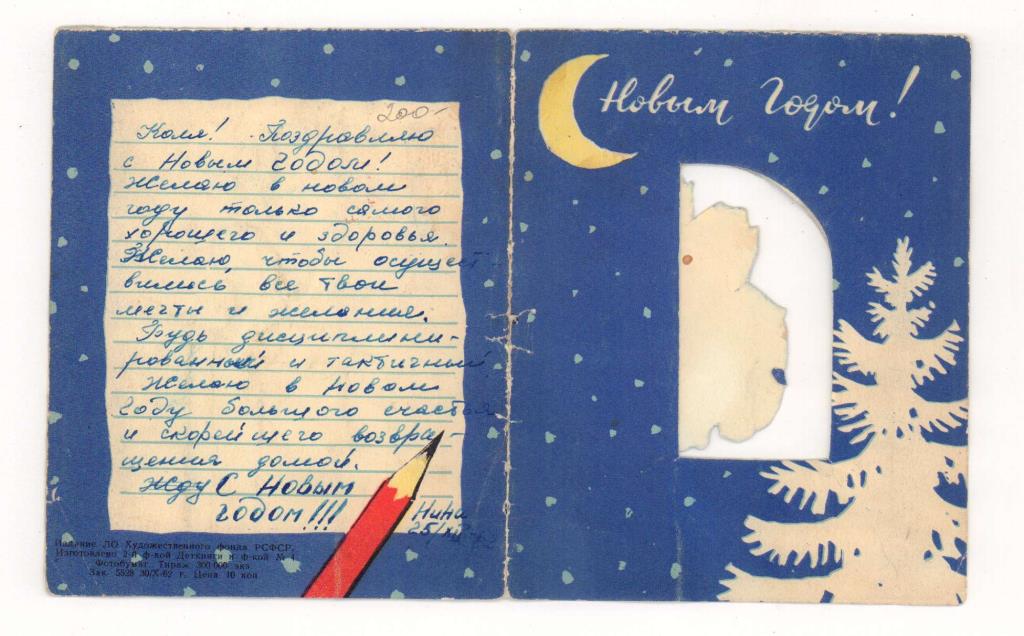 200-
Коля! Поздравляю
с Новым Годом!
Желаю в новом
году только самого
хорошего и здоровья.
Желаю, чтобы осущест-
вились, все твои
мечты и желания.
Будь дисциплини-
рованный и тактичный.
Желаю в Новом
Году большого счастья
и скорейшего возвра-
щения домой.
Жду С Новым
годом!!!
Нина
Издание ЛО Художественного фонда РСФСР.
Изготовлено 2-й ф-кой Деткниги и ф-кой № 4
Фотобумаг. Тираж 300 000 экз
Зак. 5528 30/X-62 г. Цена 10 коп
Новым Годом!